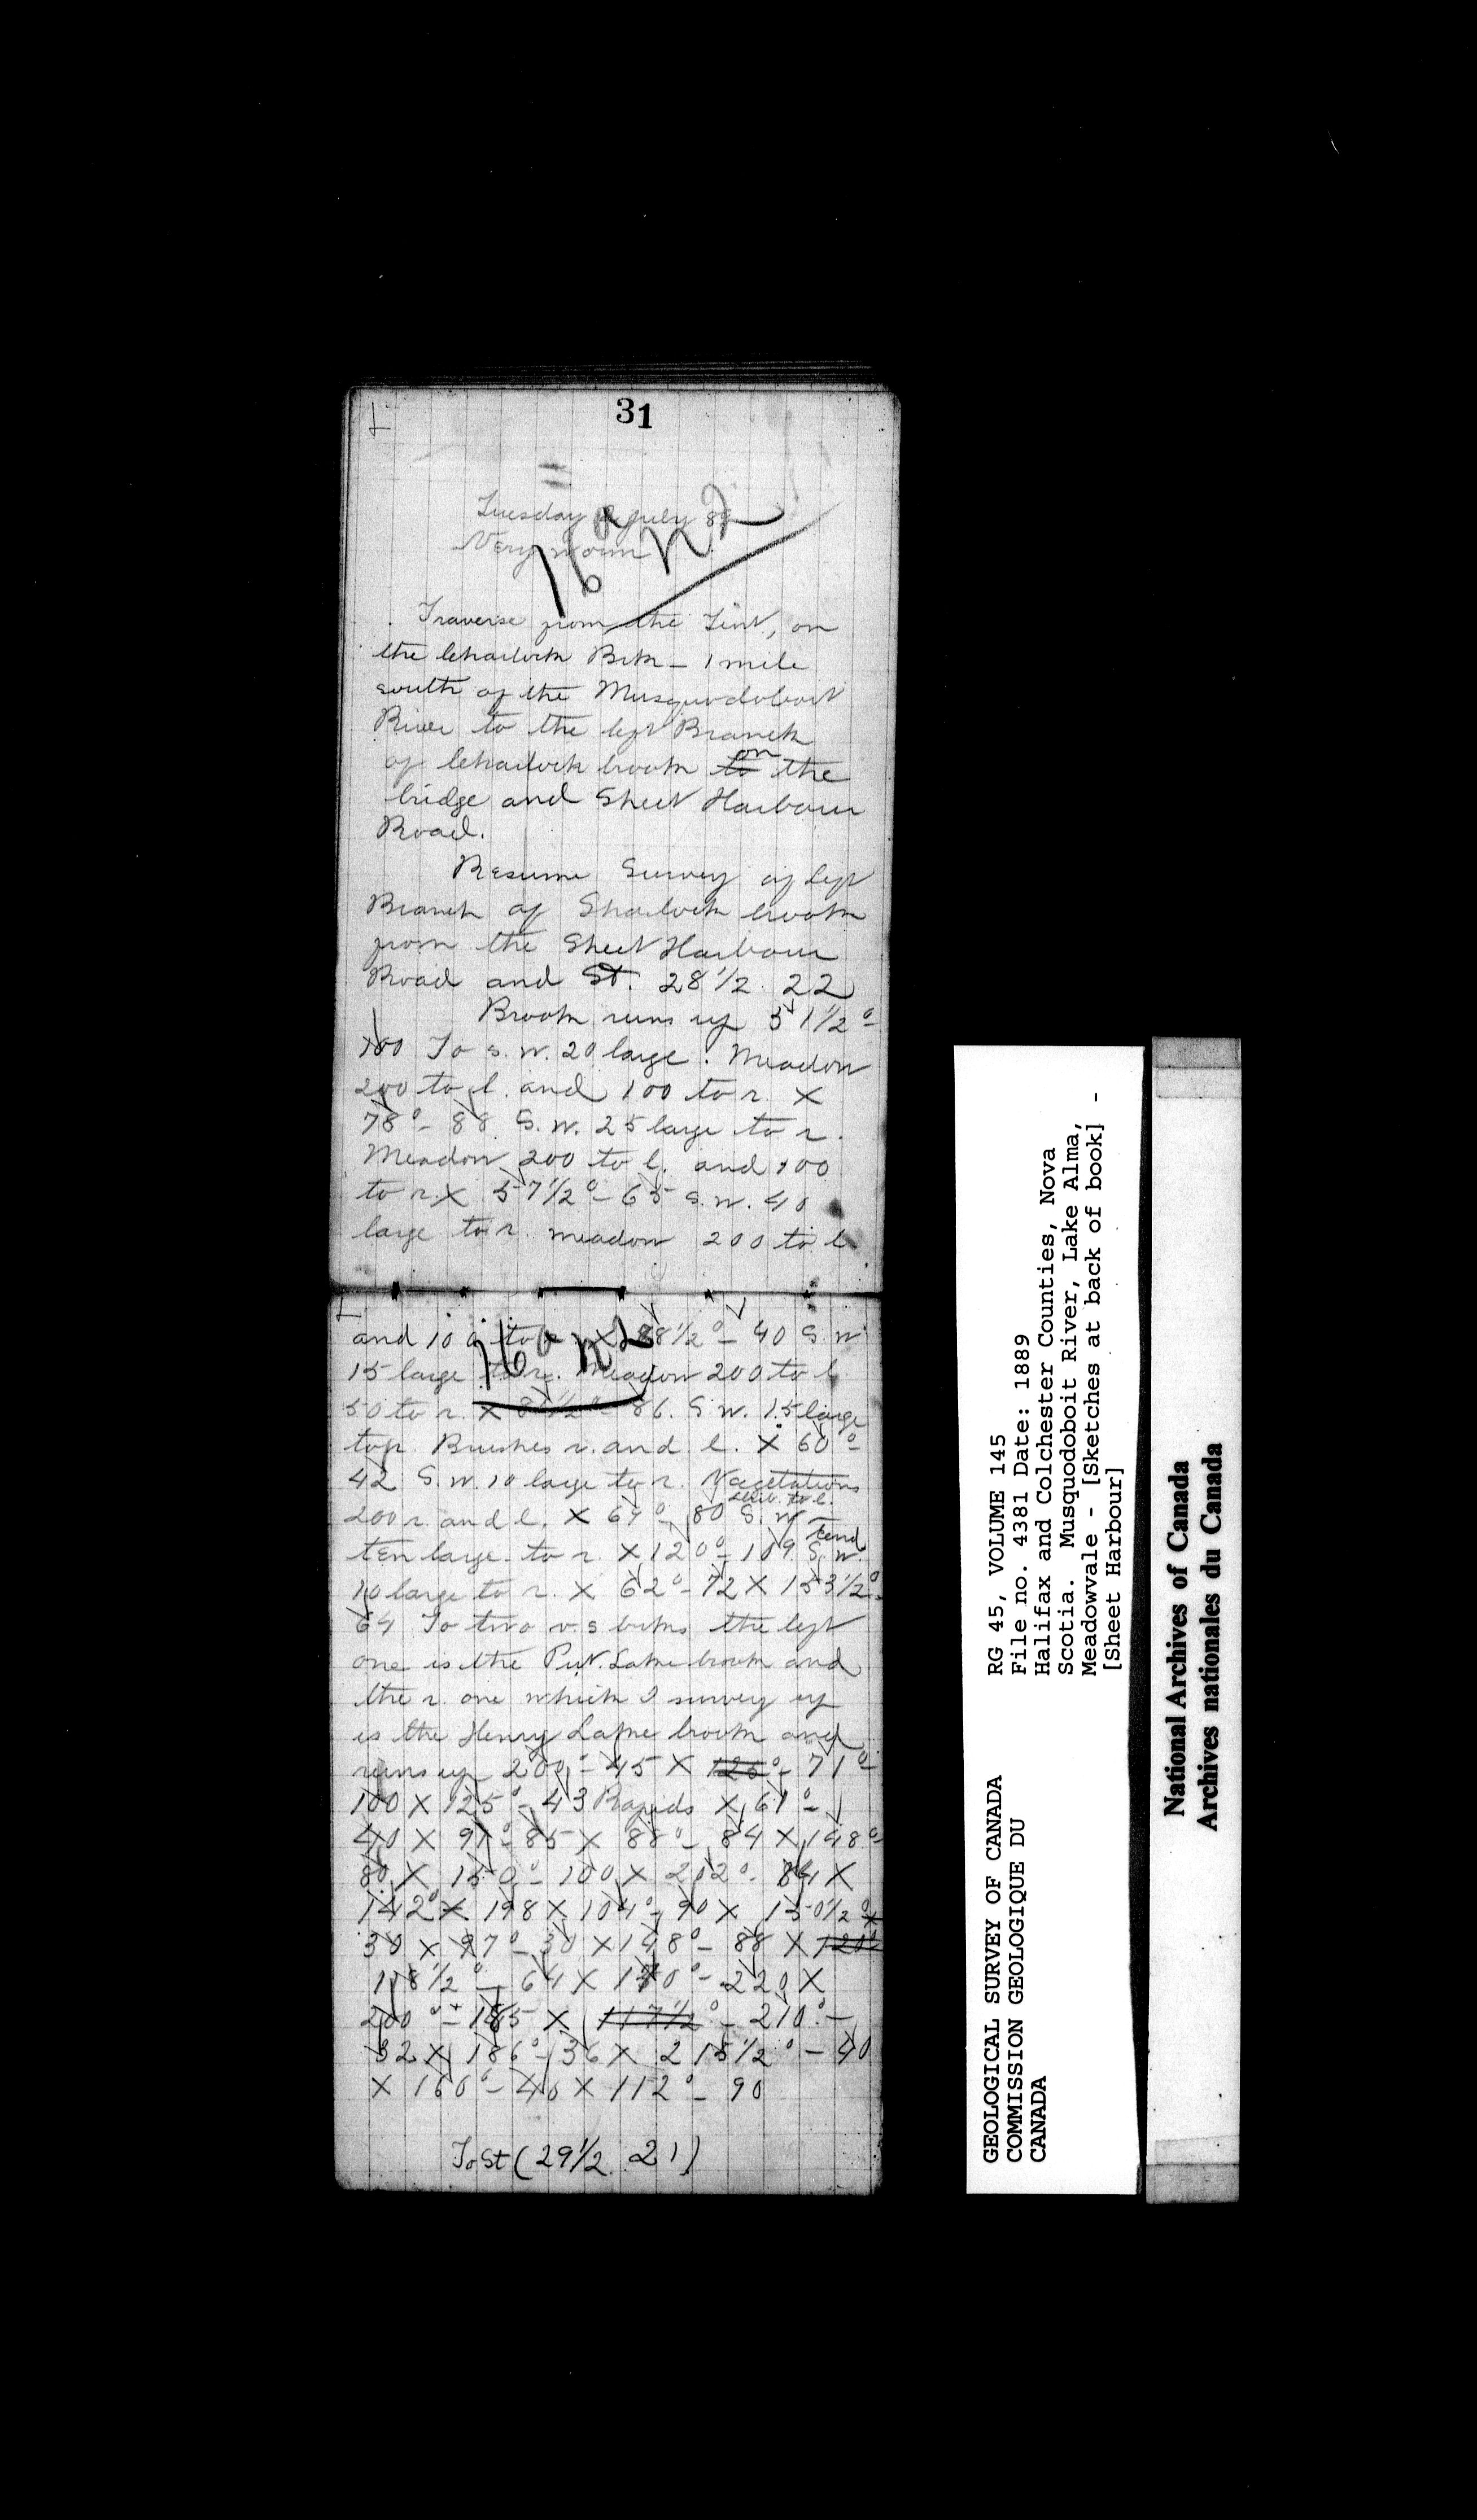 31
Tuesday 2 July 89
Very warm
16 a n 2
Traverse from the Tent, on
the Brk - 1 mile
south of the Musquodoboit
River to the left Branch
of brook on the
bridge and Sheet Harbour
Road.
Resume Survey of left
Branch of Sharlock brook
from the Sheet Harbour
Road and St. 28 1/2 22
Brook runs up 51 1/2° -
100 To s. w. 20 large. Meadow
200 to l. and 100 to r. X
78° - 88 S. w. 25 large to r.
Meadow 200 to l. and 100
to r. X 57 1/2° - 65 s. w. 40
large to r. meadow 200 to l
and 100 to r. X 88 1/2° - 40 S. w
15 large to r. Meadow 200 to l
50 to r. X - 86. S. w. 15 large
16 a n 2
to r. Bushes r. and l. X 60° -
42 S. w. 10 large to r. Vegetations
200 r. and l. X 64° - 80 S. w
still to l.
ten large to r. X 120° - 109. S. w.
10 large to r. X 62° - 72 X 153 1/2° -
64 To two v. s brks the left
one is the Lake brook and
the r. one which I survey up
is the Henry Lake brook and
runs up 200° - 45 X 125° - 71° -
100 X 125° - 43 Rapids X 61° -
40 X 91° - 85 X 88° - 84 X 148° -
80 X 150° - 100 X 202° - 84 X
142° X 198 X 104° - 90 X 150 1/2°
30 X 97° - 30 X 148° - 88 X 120°
118 1/2° - 64 X - 220 X
200° - 185 X 117 1/2° - 210° -
32 X 186° - 36 X 215 1/2° - 40
X 160° - 40 X 112° - 90
To St (29 1/2 21)
GEOLOGICAL SURVEY OF CANADA
COMMISSION GEOLOGIQUE DU
CANADA
RG 45, VOLUME 145
File no. 4381 Date: 1889
Halifax and Colchester Counties, Nova
Scotia. Musquodoboit River, Lake Alma,
Meadowvale - [Sketches at back of book] -
[Sheet Harbour]
National Archives of Canada
Archives nationales du Canada